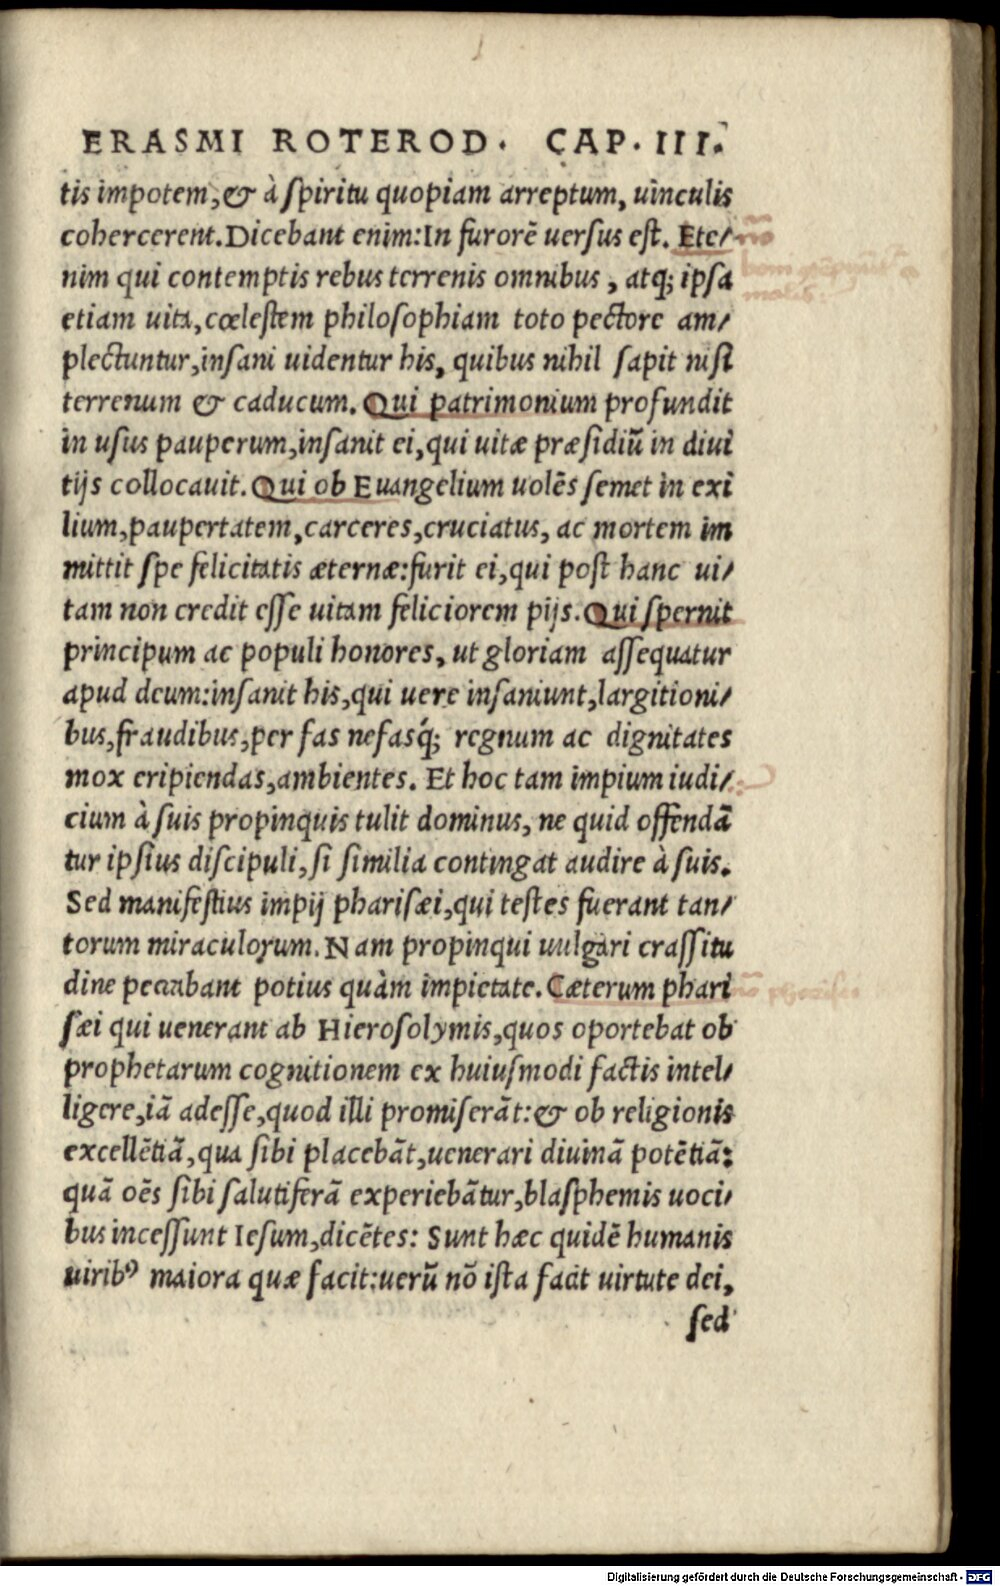 ERASMI ROTEROD. CAP. III.
tis impotem, & à spiritu quopiam arreptum, uinculis
cohercerent. Dicebant enim: In furorē uersus est. Ete/
nim qui contemptis rebus terrenis omnibus, atq; ipsa
etiam uita, cœlestem philosophiam toto pectore am/
plectuntur, insani uidentur his, quibus nihil sapit nisi
terrenum & caducum. Qui patrimonium profundit
in usus pauperum, insanit ei, qui uitæ præsidiū in diui
tijs collocauit. Qui ob Euangelium uolēs semet in exi
lium, paupertatem, carceres, cruciatus, ac mortem im
mittit spe felicitatis æternæ: furit ei, qui post hanc ui/
tam non credit esse uitam feliciorem pijs. Qui spernit
principum ac populi honores, ut gloriam assequatur
apud deum: insanit his, qui uere insaniunt, largitioni/
bus, fraudibus, per fas nefasq́; regnum ac dignitates
mox eripiendas, ambientes. Et hoc tam impium iudi/
cium à suis propinquis tulit dominus, ne quid offendā
tur ipsius discipuli, si similia contingat audire à suis.
Sed manifestius impij pharisæi, qui testes fuerant tan/
torum miraculorum. Nam propinqui uulgari crassitu
dine peccabant potius quàm impietate. Cæterum phari
sæi qui uenerant ab Hierosolymis, quos oportebat ob
prophetarum cognitionem ex huiusmodi factis intel/
ligere, iā adesse, quod illi promiserāt: & ob religionis
excellētiā, qua sibi placebāt, uenerari diuinā potētiā:
quā oēs sibi salutiferā experiebātur, blasphemis uoci/
bus incessunt Iesum, dicētes: Sunt hæc quidē humanis
uirib⁹ maiora quæ facit: uerū nō ista facit uirtute dei,
sed
pharisei
Digitalisierung gefördert durch die Deutsche Forschungsgemeinschaft - DFG